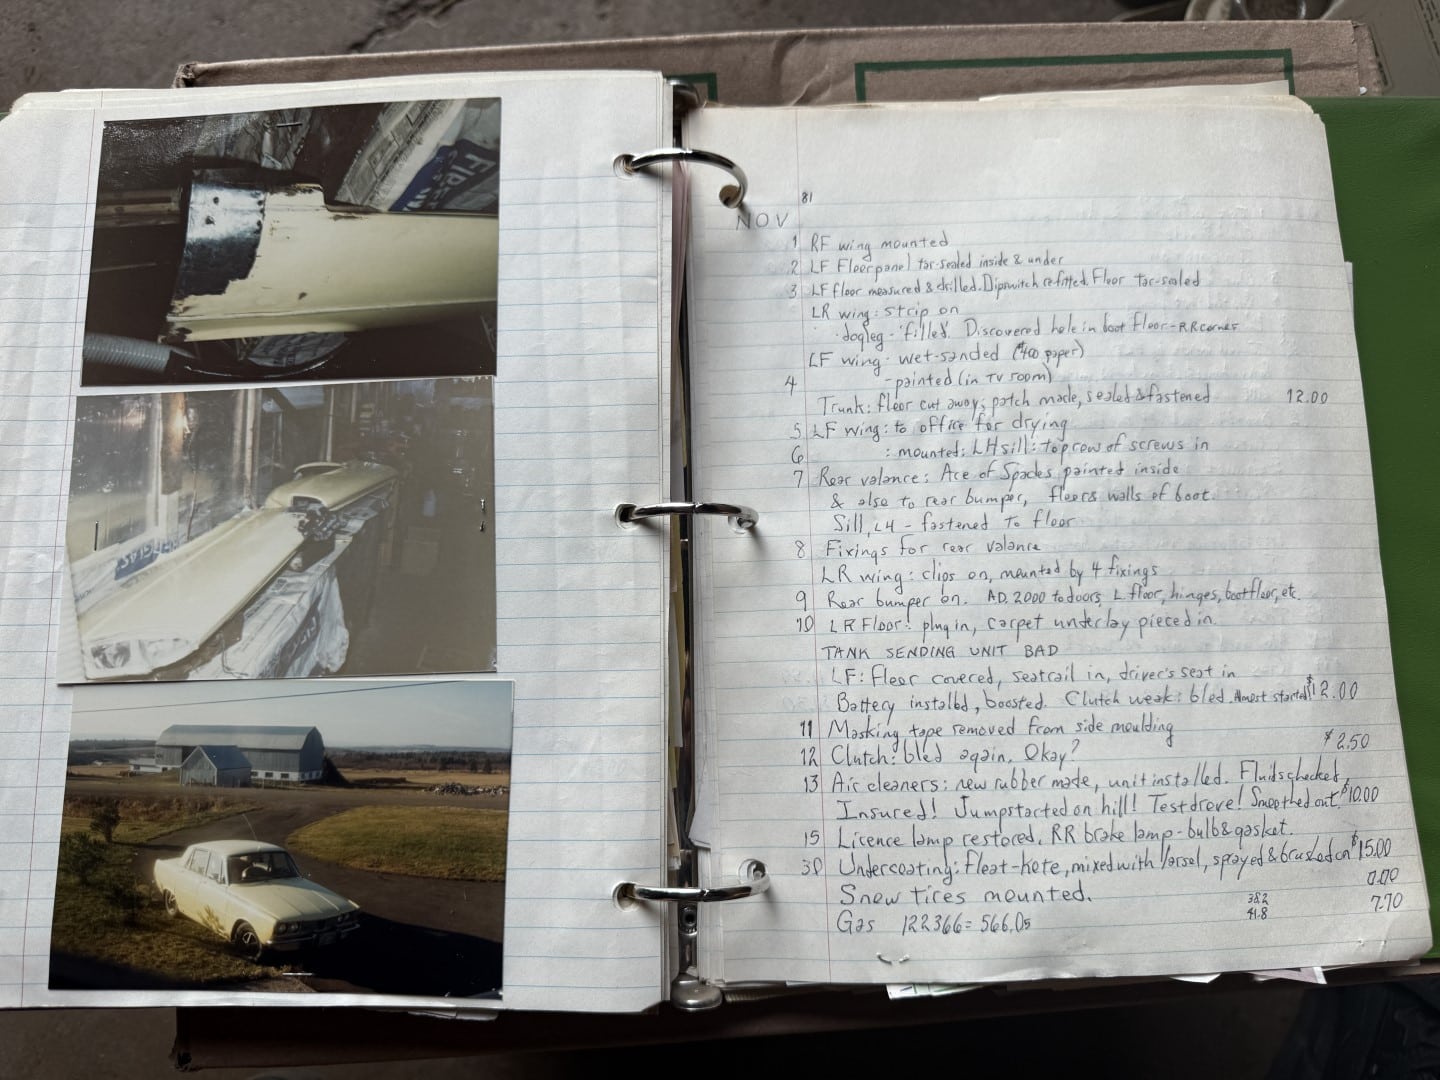 81
NOV
1 RF wing mounted
2 LF Floorpanel tar-sealed inside & under
3 LF floor measured & drilled. Dipswitch refitted. Floor tar-sealed
LR wing: strip on
· dogleg - 'filled'. Discovered hole in boot floor - RR corner
LF wing - wet-sanded (#400 paper)
4 - painted (in TV room)
Trunk: floor cut away; patch made, sealed & fastened 12.00
5 LF wing: to office for drying
6 : mounted; LH sill: top row of screws in
7 Rear valance: Ace of Spades painted inside
& also to rear bumper, floor & walls of boot.
Sill, LH - fastened To floor
8 Fixings for rear valance
LR wing: clips on, mounted by 4 fixings
9 Rear bumper on. AD. 2000 to doors, L floor, hinges, bootfloor, etc.
10 LR Floor: plug in, carpet underlay pieced in.
TANK SENDING UNIT BAD
LF: Floor covered, seatrail in, driver's seat in
Battery installed, boosted. Clutch weak: bled. Almost started! $12.00
11 Masking tape removed from side moulding
12 Clutch: bled again. Okay? $2.50
13 Air cleaners: new rubber made, unit installed. Fluids checked,
Insured! Jumpstarted on hill! Test drove! Smoothed out. $10.00
15 Licence lamp restored. RR brake lamp - bulb & gasket.
30 Undercoating: Float-kote, mixed with Varsol, sprayed & brushed on $15.00
Snow tires mounted. 0.00
Gas 122366 = 566.05 38.2 7.70
41.8